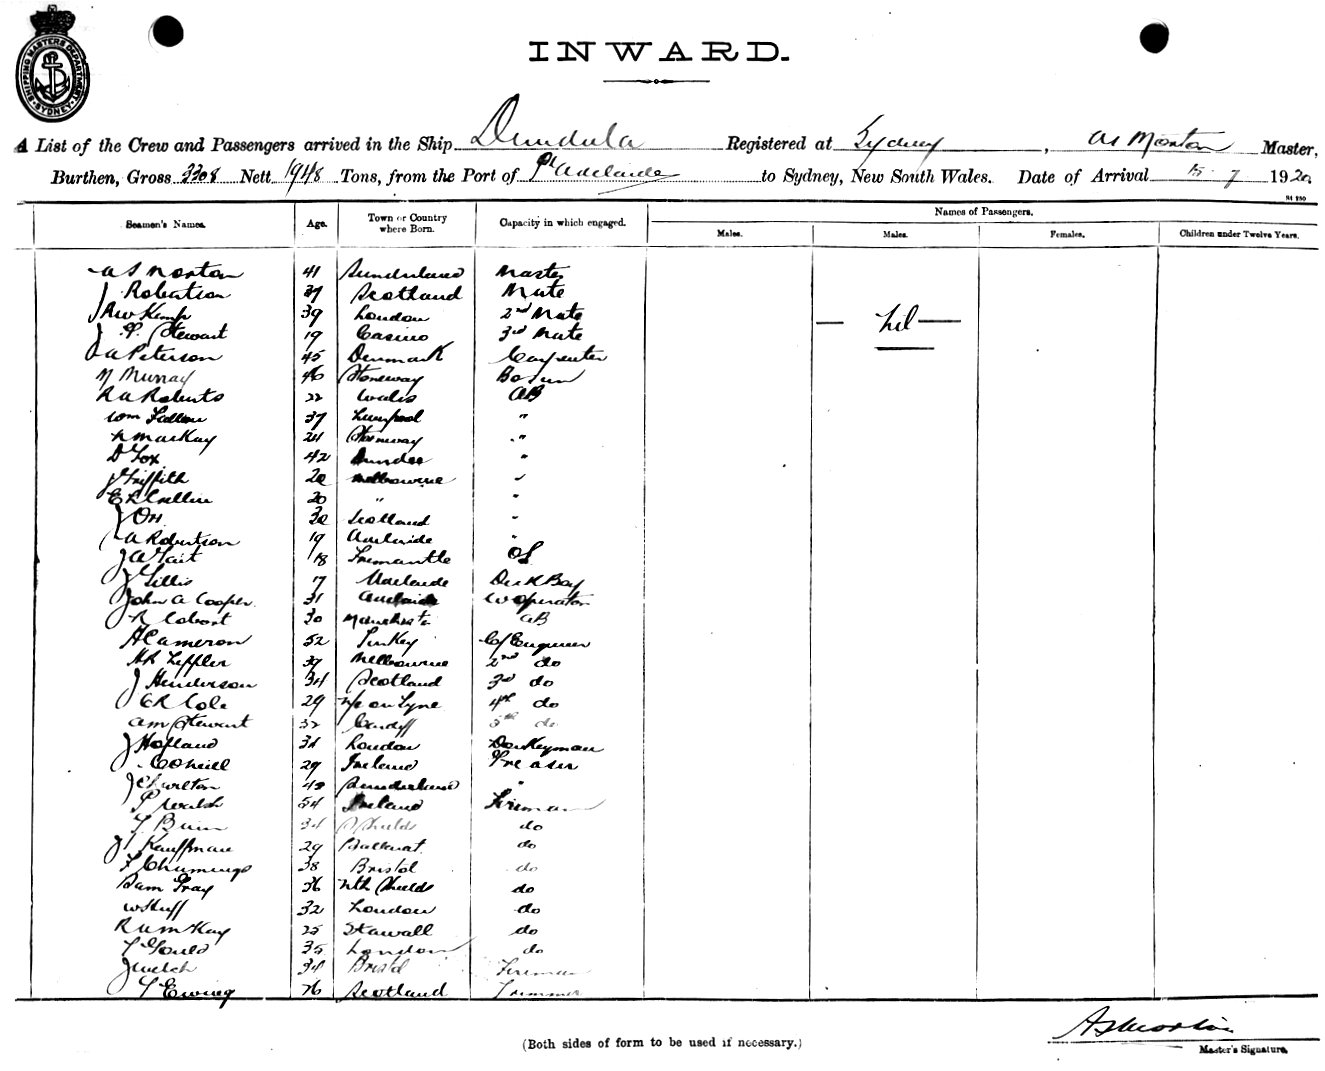 SHIPPING MASTERS DEPARTMENT SYDNEY
INWARD.
A List of the Crew and Passengers arrived in the Ship Dundula Registered at Sydney, AS Morton Master,
Burthen, Gross 3308 Nett 1948 Tons, from the Port of Pt Adelaide to Sydney, New South Wales. Date of Arrival 15 7 1920
Seamen's Names. Age. Town or Country where Born. Capacity in which engaged. Names of Passengers.
Males. Males. Females. Children under Twelve Years.
A S Morton 41 Sunderland Master
J Robertson 37 Scotland Mate
Kemp 39 London 2nd Mate
— Nil —
J P Stewart 19 Casino 3rd Mate
A Peterson 45 Denmark Carpenter
M Murray 46 Stoneway Bosun
R A Roberts 22 Wales AB
Wm 37 Liverpool "
N Mackay 24 Stornway "
D Fox 42 Dundee "
J Griffith 20 Melbourne "
E R 20 " "
J Orr 30 Scotland "
A Robertson 19 Adelaide "
J A Tait 18 Fremantle OS
J Gillis 17 Adelaide Deck Boy
John A Cooper 31 Adelaide W Operator
R 30 Manchester AB
H Cameron 52 Turkey C/Engineer
H R Leffler 39 Melbourne 2nd do
J Henderson 34 Scotland 3rd do
C R Cole 29 N/c on Tyne 4th do
A M Stewart 32 Cardiff 5th do
J Hofland 31 London Donkeyman
C O'Neill 29 Ireland Greaser
J Chwilton 40 Sunderland "
P Walsh 54 Ireland Fireman
T Brim 34 S Shields do
J Kauffman 29 Ballarat do
F Chumings 38 Bristol do
Sam Gray 36 Nth Shields do
W Huff 32 London do
R A McKay 25 Stawall do
T Gould 35 London do
J Welch 34 Bristol Fireman
T Ewing 26 Scotland Trimmer
A S Morton
Master's Signature.
(Both sides of form to be used if necessary.)